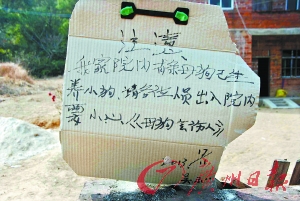 注意
我家院内有条母狗已生
养小狗,请各位人员出入院内
要小心《母狗会伤人》
广州日报